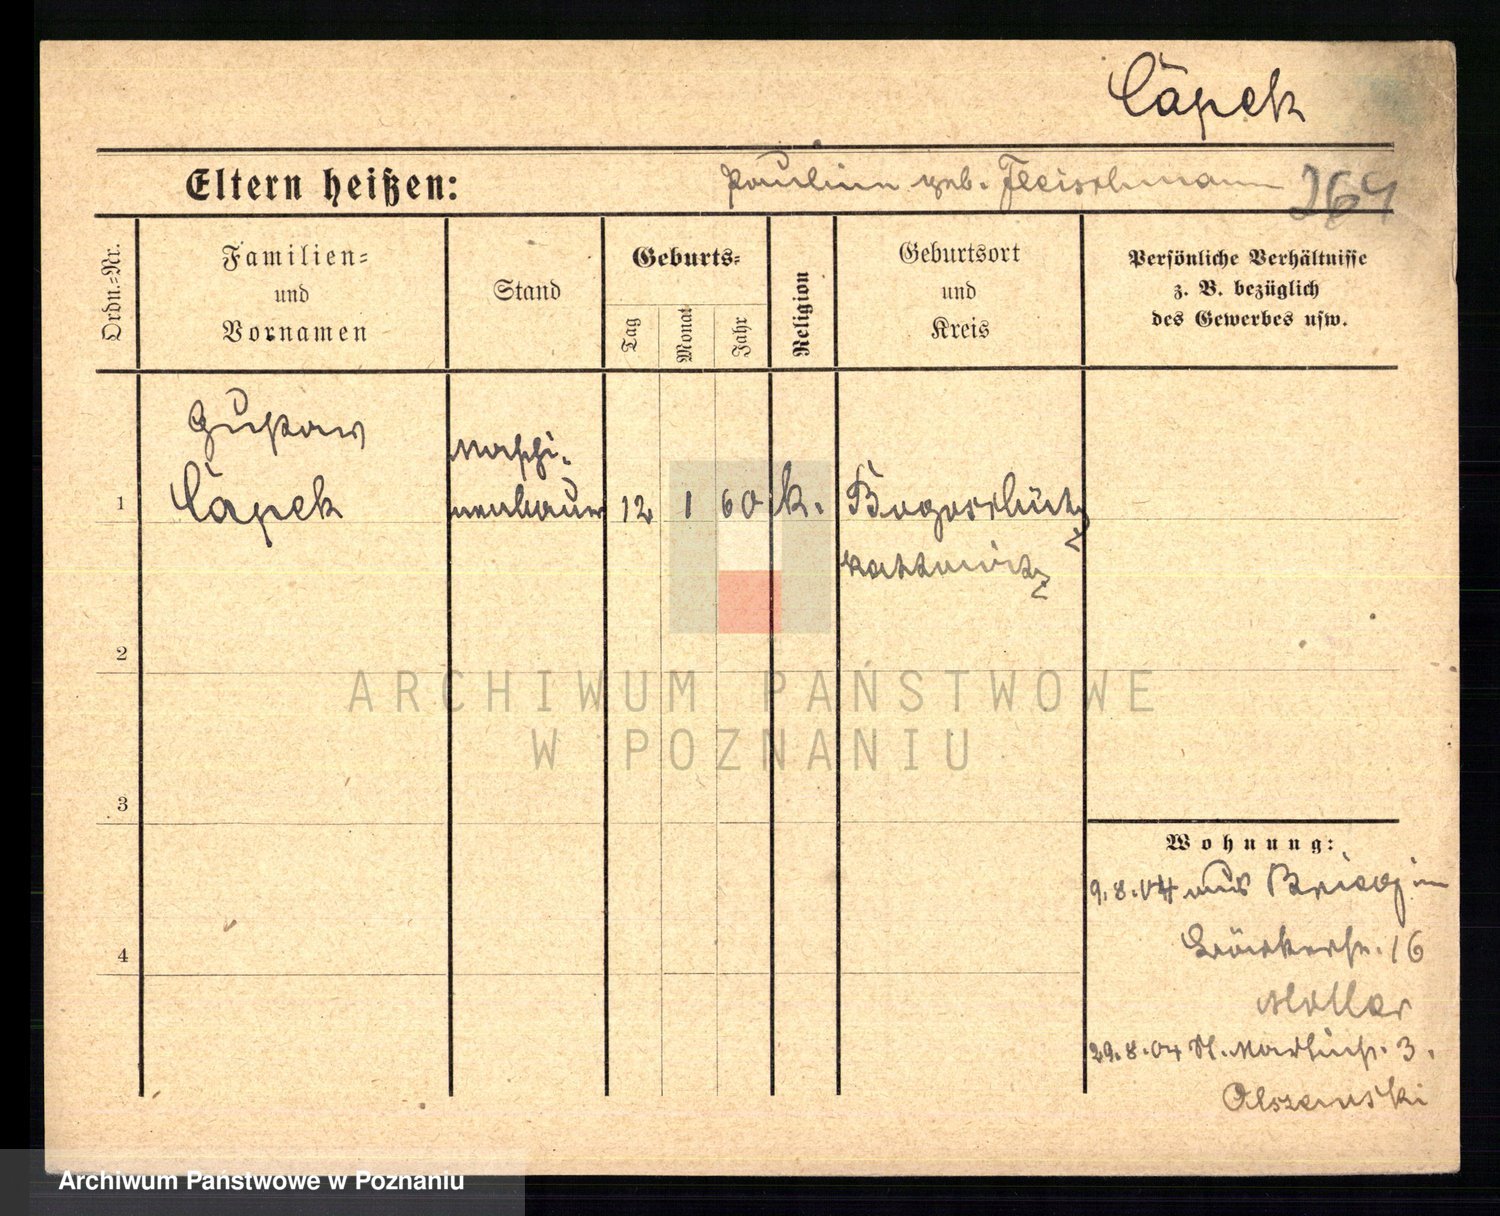 Cäpek
Eltern heißen:
Pauline geb. Fleischmann
264
Ordn.-Nr.
Familien-
und
Vornamen
Stand
Geburts-
Tag
Monat
Jahr
Religion
Geburtsort
und
Kreis
Persönliche Verhältnisse
z. B. bezüglich
des Gewerbes usw.
1
Gustav
Čapek
Maschi-
nenbauer
12
1
60
k.
Kattowitz
2
3
4
Wohnung:
9.8.04 aus Brieg in
16
Moller
29.8.04 St. Martinstr. 3.
Olszewski
ARCHIWUM PAŃSTWOWE
W POZNANIU
Archiwum Państwowe w Poznaniu